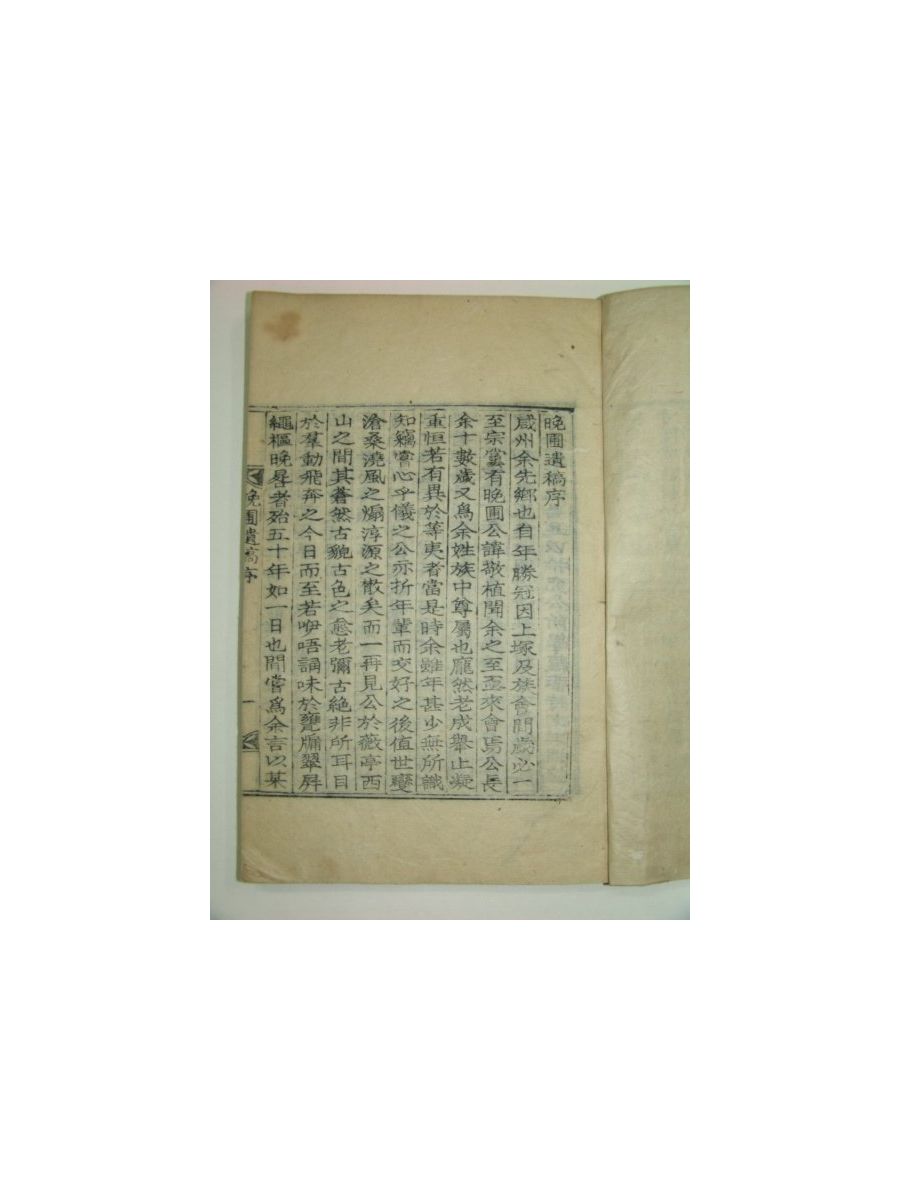 晚圃遺稿序
咸州余先鄕也自年勝冠因上塚及族會間歲必一
至宗黨有晚圃公諱敬植聞余之至盃來會焉公長
余十數歲又爲余姓族中尊屬也龐然老成擧止凝
重恒若有異於等夷者當是時余雖年甚少無所識
知竊嘗心乎儀之公亦折年輩而交好之後值世變
滄桑澆風之煽淳源之散矣而一再見公於薇亭西
山之間其蒼然古貌古色之愈老彌古絶非所耳目
於羣動飛奔之今日而至若咿唔誦味於甕牖翠屛
繩樞晚晷者殆五十年如一日也間嘗爲余言以某
晚圃遺稿序
一